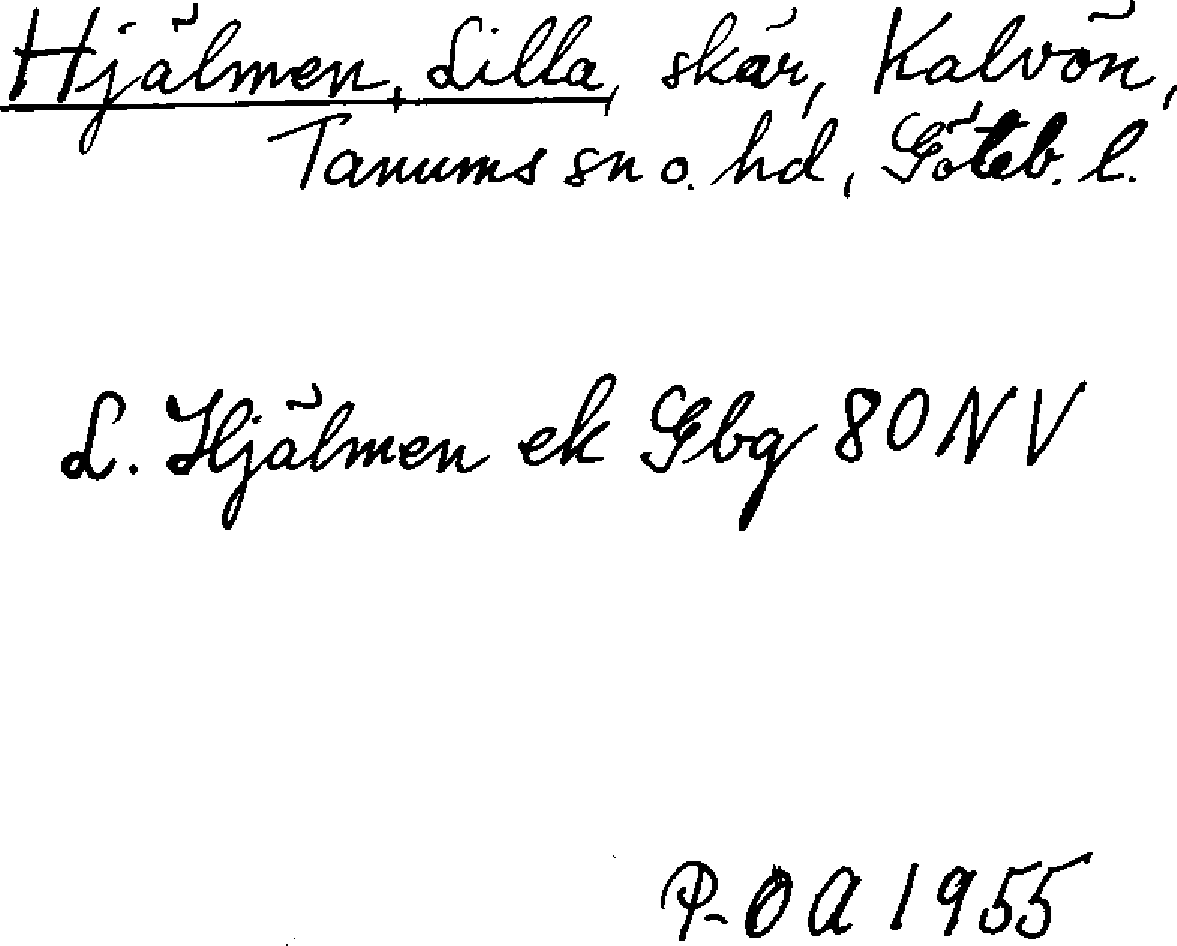 Hjälmen, Lilla, skär, Kalvön,
Tanums sn o. hd, Göteb. l.
L. Hjälmen ek Gbg 80 NV
P-OA 1955